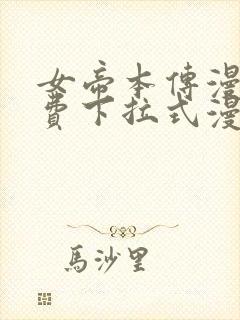 女帝本傳漫
費下拉式漫
馬沙里